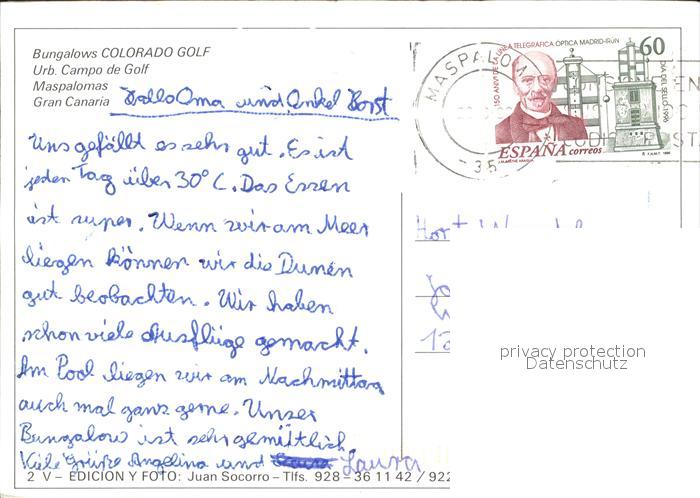 Bungalows COLORADO GOLF
Urb. Campo de Golf
Maspalomas
Gran Canaria
Hallo Oma und Onkel Horst
Uns gefällt es sehr gut. Es ist
jeden Tag über 30°C. Das Essen
ist super. Wenn wir am Meer
liegen können wir die Dünen
gut beobachten. Wir haben
schon viele Ausflüge gemacht.
Am Pool liegen wir am Nachmittag
auch mal ganz gerne. Unser
Bungalow ist sehr gemütlich.
Viele Grüße Angelina und Laura
2 V – EDICION Y FOTO: Juan Socorro – Tlfs. 928 – 36 11 42 / 922
150 ANIV DE LA LINEA TELEGRAFICA OPTICA MADRID-IRUN
60
DIA DEL SELLO 1996
ESPAÑA correos
MASPALOM
- 35
privacy protection
Datenschutz